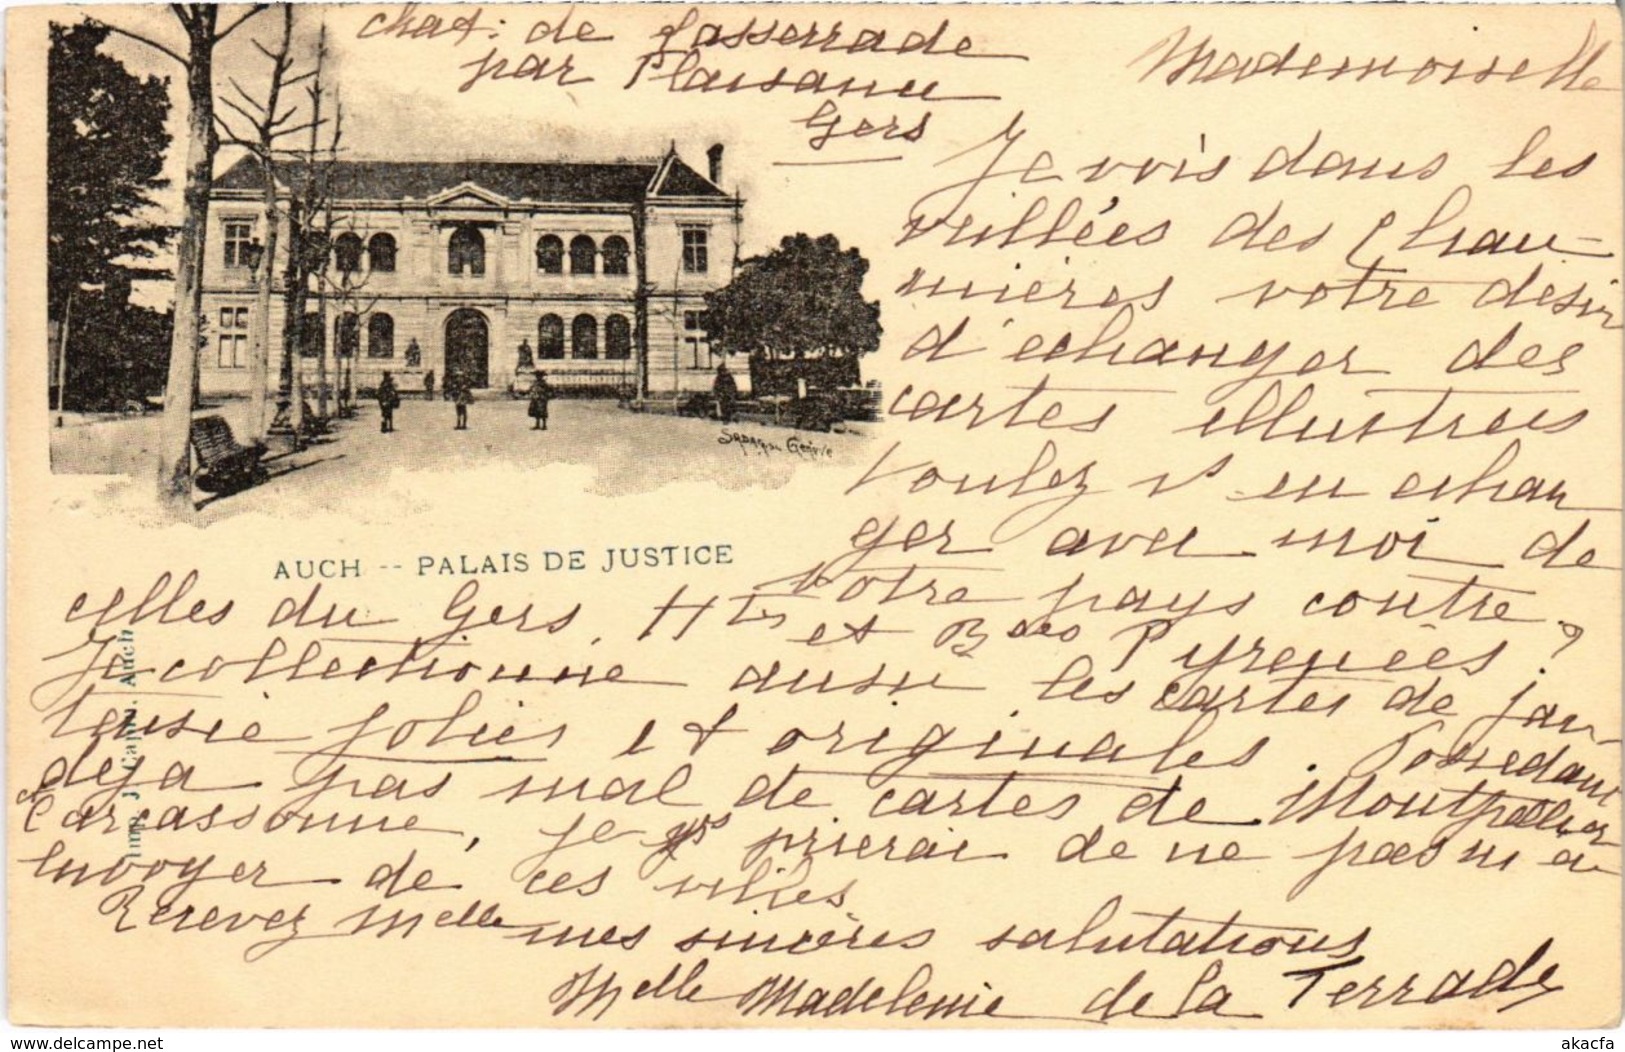 chat. de Lasserrade
par Plaisance
Gers
Mademoiselle
Je vois dans les
veillées des Chau-
mières votre désir
d'échanger des
cartes illustrées
voulez vs en echan
ger avec moi de
votre pays contre
celles du Gers, Htes et Bses Pyrenées ?
Je collectionne aussi les cartes de fan-
taisie jolies et originales. Possedant
deja pas mal de cartes de Montpellier et
Carcassonne, je vs prierai de ne pas m'en
envoyer de ces villes.
Recevez Melle mes sincères salutations
Melle Madeleine de la Terrade
SADAG.SA Genève
AUCH -- PALAIS DE JUSTICE
Imp. J. Capin. Auch
http://www.delcampe.net
akacfa